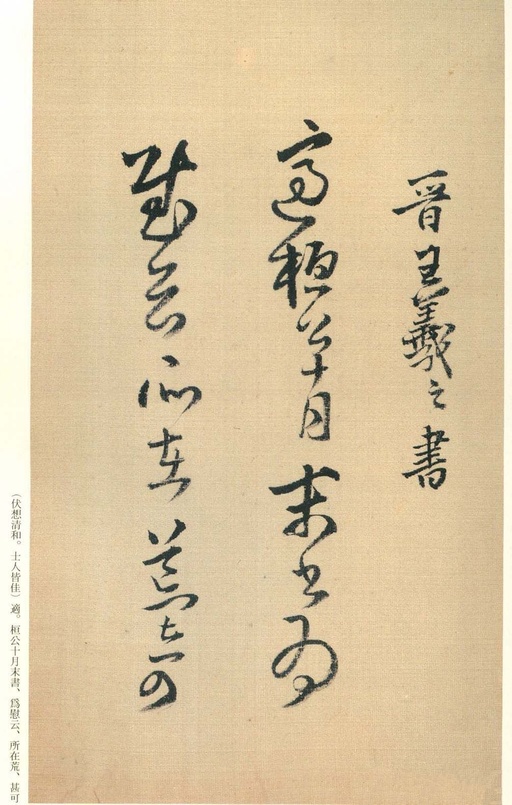 晋王羲之書
適桓公十月末書為
慰云所在荒甚可
（伏想清和。士人皆佳）適。桓公十月末書、爲慰云、所在荒、甚可